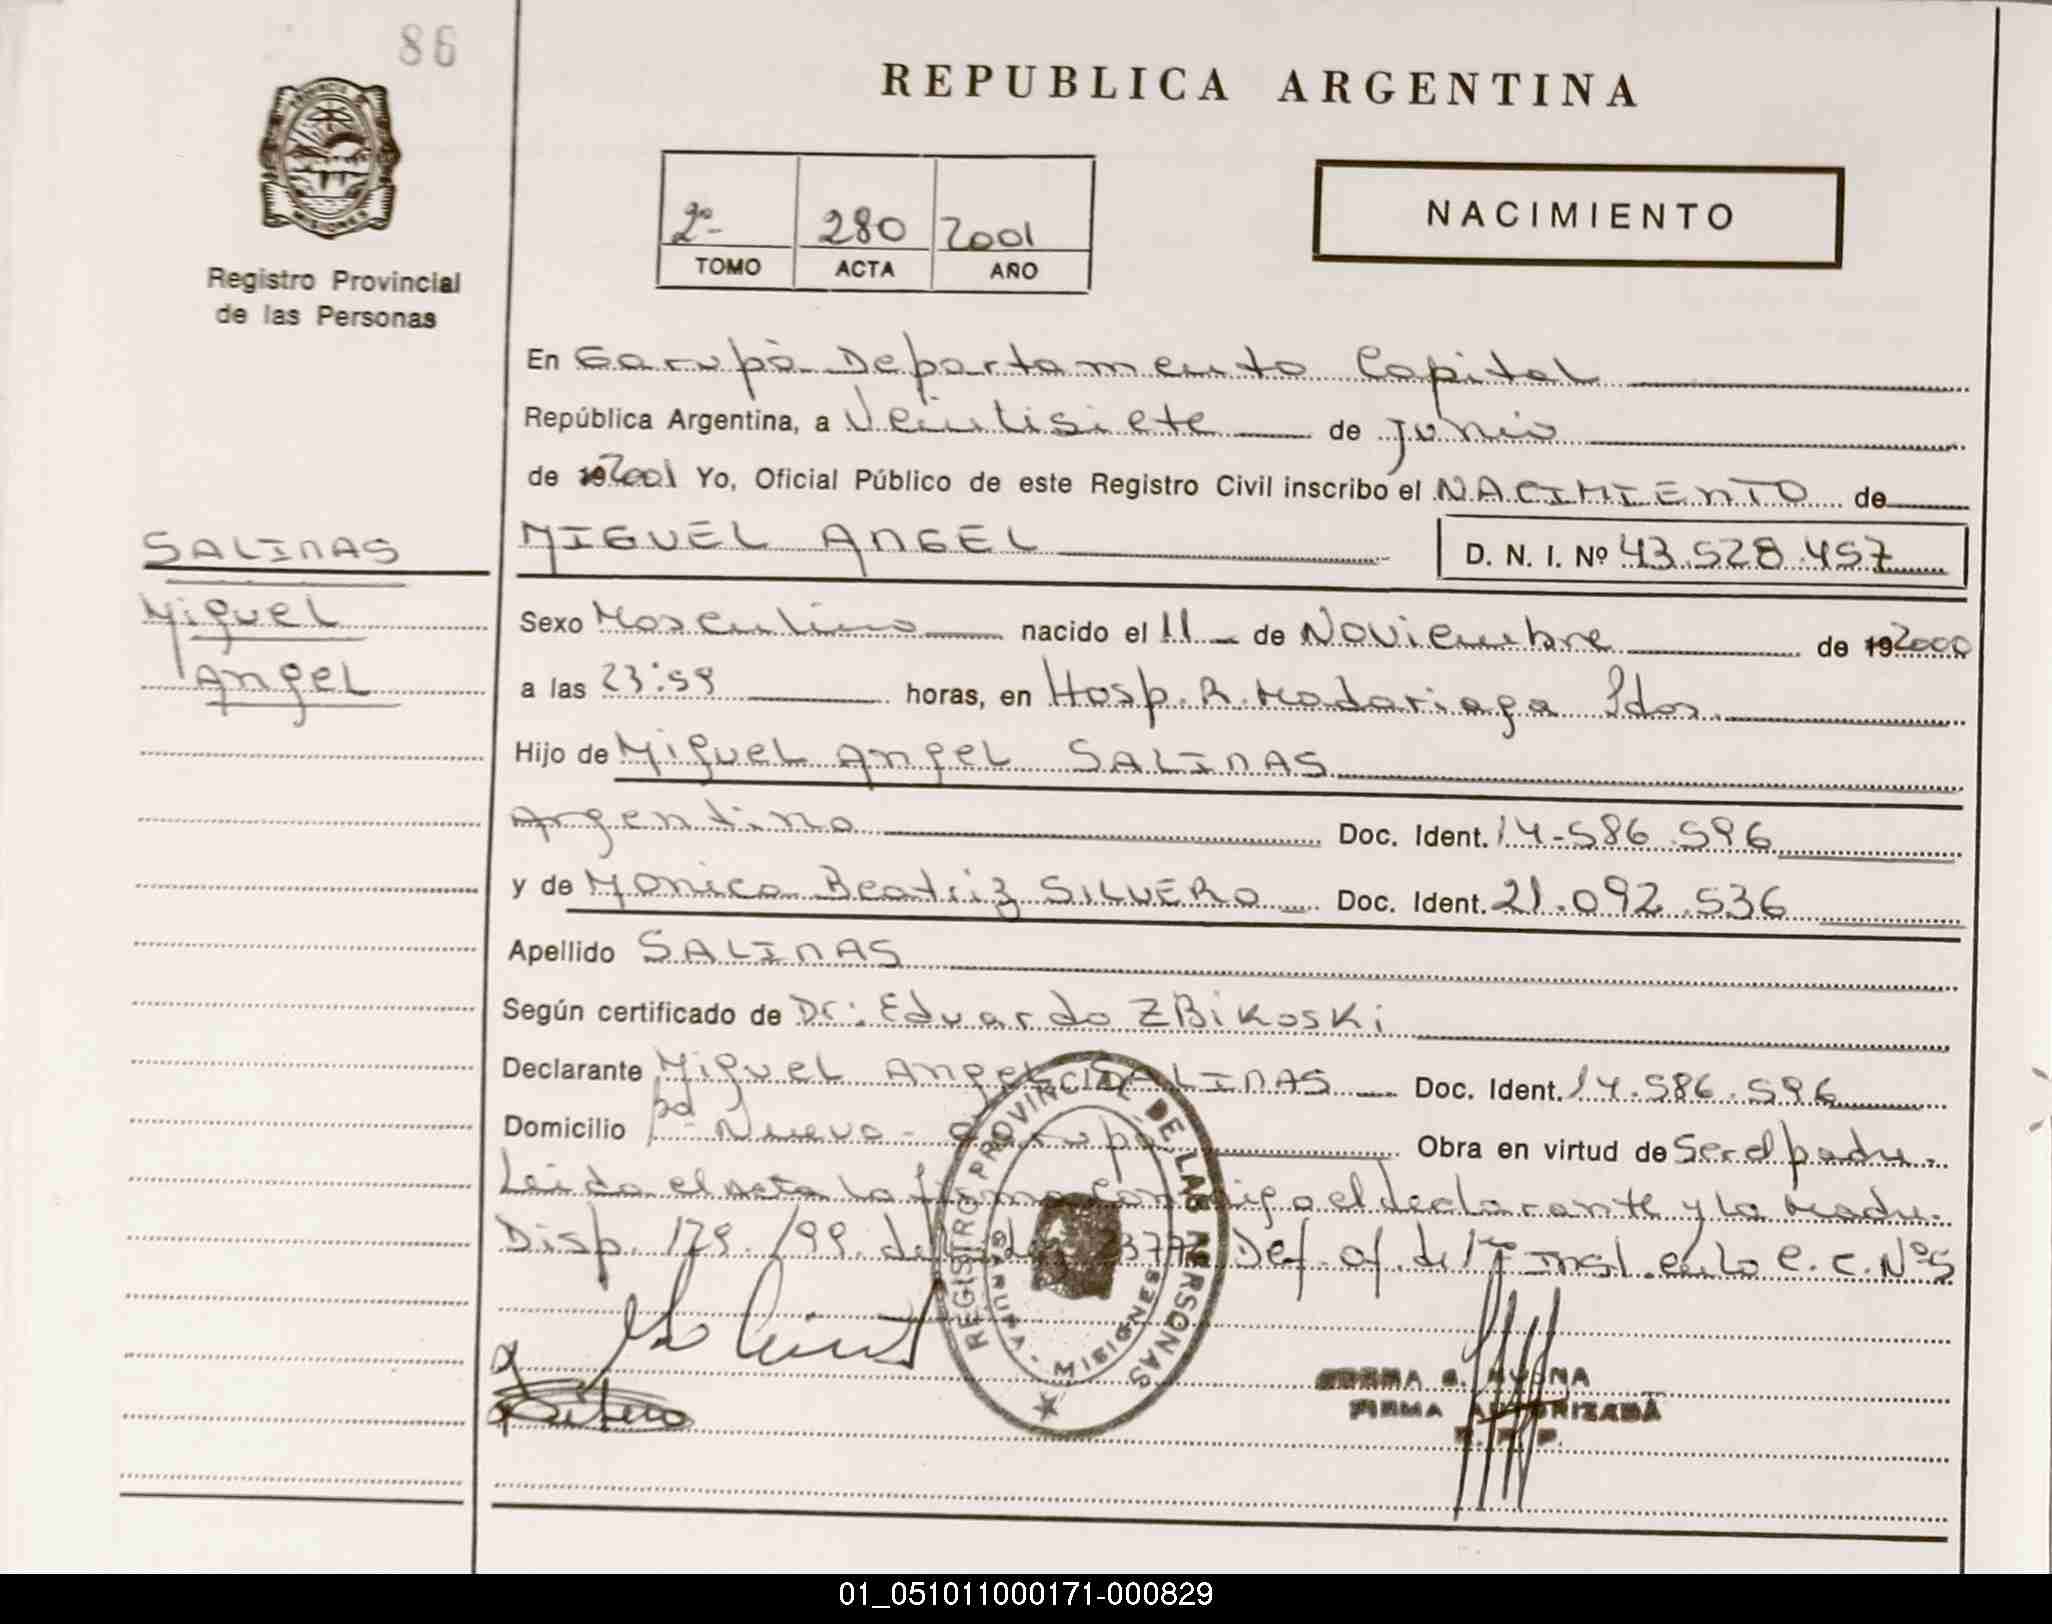 86
REPUBLICA ARGENTINA
NACIMIENTO
2º 280 2001
TOMO ACTA AÑO
MISIONES
Registro Provincial
de las Personas
En Garupà Departamento Capital
República Argentina, a Veintisiete de junio
de 192001 Yo, Oficial Público de este Registro Civil inscribo el NACIMIENTO de
SALINAS
MIGUEL ANGEL D. N. I. Nº 43.528.457
Miguel
Sexo Masculino nacido el 11 de Noviembre de 192000
Angel
a las 23:59 horas, en Hosp. R. Madariaga Pdas.
Hijo de Miguel Angel SALINAS
Argentino Doc. Ident. 14-586.596
y de Monica Beatriz SILVERO Doc. Ident. 21.092.536
Apellido SALINAS
Según certificado de Dr: Eduardo ZBIKOSKI
Declarante Miguel Angel SALINAS Doc. Ident. 14.586.596
Domicilio Bº Nuevo - Garupá Obra en virtud de Ser el padre.
Leida el Acta la firma conmigo el declarante y la Madre.
Disp. 179/99. Def. of. de 1º Inst. en lo C. C. Nº 5
REGISTRO PROVINCIAL DE LAS PERSONAS
GARUPA - MISIONES
FIRMA AUTORIZADA
R. P. P.
01_051011000171-000829